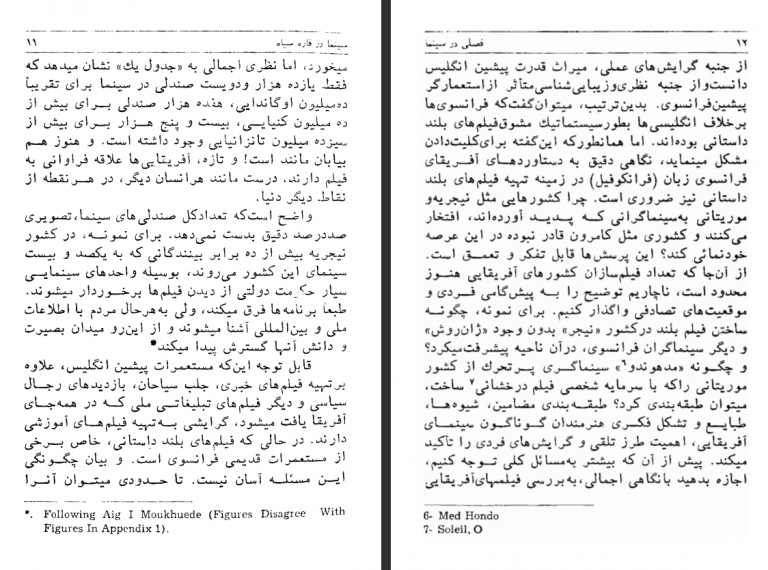 سینما در قاره سیاه ۱۱
میخورد، اما نظری اجمالی به «جدول یك» نشان میدهد که
فقط یازده هزار ودویست صندلی در سینما برای تقریباً
ده‌میلیون اوگاندایی، هفده هزار صندلی بـرای بیش از
ده میلیون کنیایی، بیست و پنج هـزار برای بیش از
سیزده میلیون تانزانیایی وجود داشته است. و هنوز هم
بیابان مانند است! و تازه، آفریقایی‌ها علاقه فراوانی به
فیلم دارند. درست مانند هرانسان دیگر، در هرنقطه از
نقاط دیگر دنیا.
واضح است‌که تعدادکل صندلی‌های سینما،تصویری
صددرصد دقیق بدست نمی‌دهد. برای نمونه، در کشور
نیجریه بیش از ده برابر بینندگانی که به یکصد و بیست
سینمای این کشور می‌روند، بوسیله واحدهای سینمایـی
سیار حکومت دولتی از دیدن فیلم‌ها برخوردار میشوند.
طبعاً برنامه‌ها فرق میکند، ولی به‌هرحال مردم با اطلاعات
ملی و بین‌المللی آشنا میشوند و از این‌رو میدان بصیرت
و دانش آنها گسترش پیدا میکند*
قابل توجه این‌که مستعمرات پیشین انگلیس، علاوه
برتهیه فیلم‌های خبری، جلب سیاحان، بازدیدهای رجـال
سیاسی و دیگر فیلم‌های تبلیغاتـی ملی کـه در همه‌جای
آفریقا یافت میشود، گرایشی به‌تهیه فیلم‌هـای آموزشی
دارند. در حالی که فیلم‌های بلند داستانی، خاص برخی
از مستعمرات قدیمی فرانسوی است. و بیان چگـونگی
ایـن مسئله آسان نیست. تا حدودی میتـوان آنـرا
*. Following Aig I Moukhuede (Figures Disagree With
Figures In Appendix 1).
۱۲ فصلی در سینما
از جنبه گرایش‌های عملی، میراث قدرت پیشین انگلیس
دانست‌واز جنبه نظری‌وزیبایی‌شناسی‌متأثر ازاستعمارگر
پیشین‌فرانسوی. بدین‌ترتیب، میتوان‌گفت‌که فرانسوی‌ها
برخلاف انگلیسی‌ها بطورسیستماتیك مشوق‌فیلم‌های بلند
داستانی بوده‌اند. اما همانطورکه این‌گفته برای‌کلیت‌دادن
مشکل مینماید، نگاهی دقیق به دستاوردهـای آفـریقای
فرانسوی زبان (فرانکوفیل) در زمینه تهیه فیلم‌های بلند
داستانی نیز ضروری است. چرا کشورهایی مثل نیجریه‌و
موریتانی به‌سینماگرانی کـه پـدیـد آورده‌اند، افتخار
می‌کنند و کشوری مثل کامرون قادر نبوده در این عرصه
خودنمائی کند؟ این پرسش‌ها قابل تفکر و تعمـق است.
از آن‌جا که تعداد فیلم‌سازان کشورهای آفریقایی هنـوز
محدود است، ناچاریم توضیح را بـه پیش‌گامی فـردی و
موقعیت‌های تصادفی واگذار کنیم. برای نمونه، چگونـه
ساختن فیلم بلند درکشور «نیجر» بدون وجود «ژان‌روش»
و دیگر سینماگران فرانسوی، درآن ناحیه پیشرفت‌میکرد؟
و چگونـه «مدهوندو۶» سینماگری پـرتحرك از کشور
موریتانی راکه با سرمایه شخصی فیلم درخشانی۷ ساخت،
میتوان طبقه‌بندی کرد؟ طبقـه‌بندی مضامین، شیوه‌هـا،
طبایـع و تشکل فکـری هنرمندان گـونـاگـون سینمـای
آفـریقایی، اهمیت طرز تلقی و گرایش‌های فردی را تأکید
میکند. پیش از آن که بیشتر به‌مسائل کلی تـوجه کنیم،
اجازه بدهید بانگاهی اجمالی،به‌بررسی فیلمهای‌آفریقایی
6- Med Hondo
7- Soleil, O